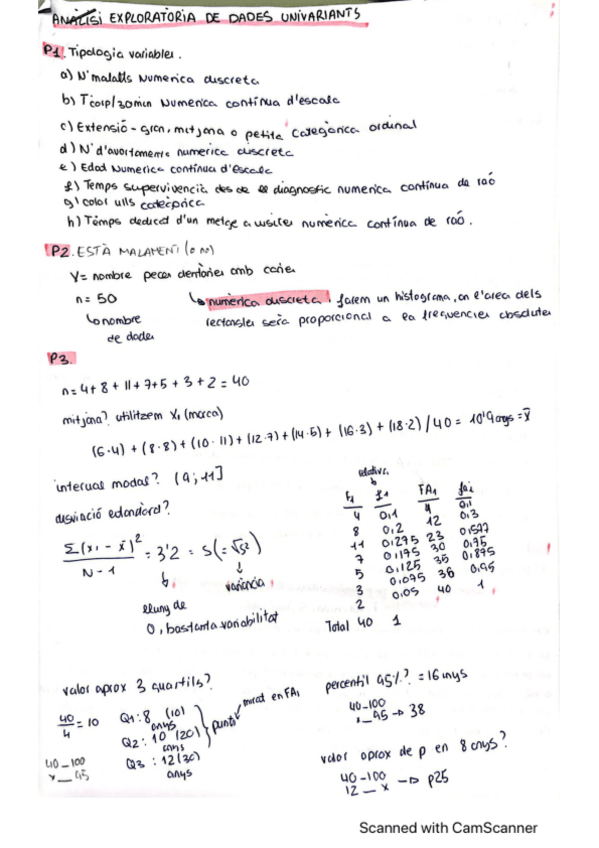 ANÀLISI EXPLORATÒRIA DE DADES UNIVARIANTS
P1. Tipologia variables.
a) Nº malalts Numerica discreta
b) Tª corp/30min Numerica contínua d'escala
c) Extensió - gran, mitjana o petita categòrica ordinal
d) Nº d'avortaments numerica discreta
e) Edad Numerica contínua d'escala
f) Temps supervivencia des de el diagnostic numerica contínua de raó
g) color ulls categòrica
h) Temps dedicat d'un metge a visites numèrica contínua de raó.
P2. ESTÀ MALAMENT (o no)
Y = nombre peces dentaries amb caries
n = 50
numèrica discreta, farem un histograma, on l'area dels
rectangles serà proporcional a les frequencies absolutes
nombre
de dades
P3.
n = 4 + 8 + 11 + 7 + 5 + 3 + 2 = 40
mitjana? utilitzem Xi (marca)
(6·4) + (8·8) + (10·11) + (12·7) + (14·5) + (16·3) + (18·2) / 40 = 10'9 anys = x̄
intervals modas? (9, 11]
desviació estandard?
Σ(xi - x̄)² / N-1 = 3'2 = S (= √s²)
lluny de
0, bastanta variabilitat
variància
relativa
Fi fi FAi fai
4 0,1 4 0,1
8 0,2 12 0,3
11 0,275 23 0,577
7 0,175 30 0,75
5 0,125 35 0,875
3 0,075 38 0,95
2 0,05 40 1
Total 40 1
valor aprox 3 quartils?
40/4 = 10
Q1: 8 (10)
anys
Q2: 10 (20)
anys
Q3: 12 (30)
anys
punts
mirat en FAi
40 - 100
x _ 95
percentil 95%? = 16 anys
40 - 100
x _ 95 → 38
valor aprox de p en 8 anys?
40 - 100
12 _ x → p25
Scanned with CamScanner